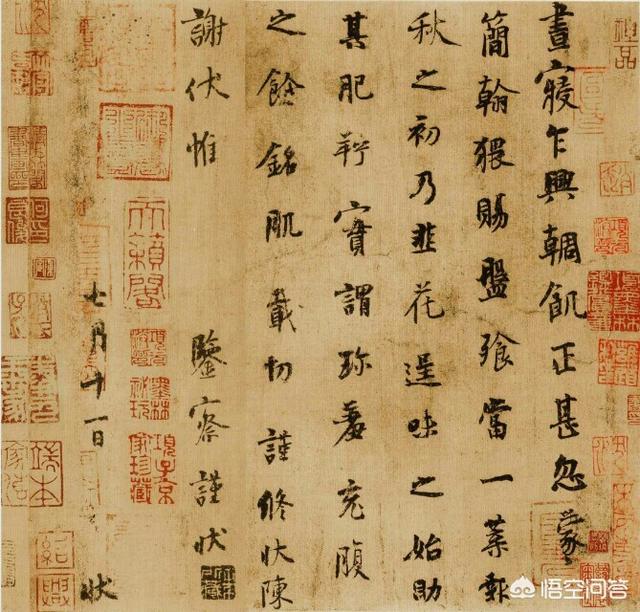 神品
晝寢乍興輖飢正甚忽蒙
簡翰猥賜盤飧當一葉報
秋之初乃韭花逞味之始助
其肥羜實謂珍羞充腹
之餘銘肌載切謹修狀陳
謝伏惟 鑒察謹狀
天籟閣
項子京家珍藏
七月十一日 狀
紹興
悟空问答